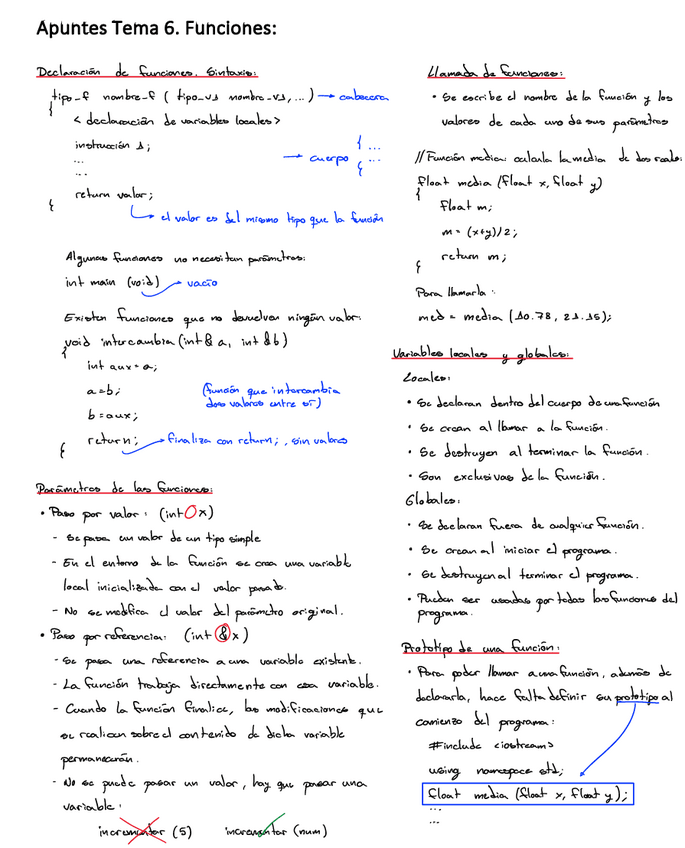 Apuntes Tema 6. Funciones:
Declaración de funciones. Sintaxis:
tipo_f nombre_f ( tipo_v1 nombre_v1, ... ) → cabecera
{
< declaración de variables locales >
instrucción 1;
...
...
→ cuerpo { ... }
return valor;
}
el valor es del mismo tipo que la función
Algunas funciones no necesitan parámetros:
int main (void) → vacío
Existen funciones que no devuelven ningún valor:
void intercambia (int & a, int & b)
{
int aux = a;
a = b;
b = aux;
(función que intercambia
dos valores entre sí)
return; → finaliza con return; , sin valores
}
Parámetros de las funciones:
• Paso por valor: (int x)
- Se pasa un valor de un tipo simple
- En el entorno de la función se crea una variable
local inicializada con el valor pasado.
- No se modifica el valor del parámetro original.
• Paso por referencia: (int & x)
- Se pasa una referencia a una variable existente.
- La función trabaja directamente con esa variable.
- Cuando la función finalice, las modificaciones que
se realicen sobre el contenido de dicha variable
permanecerán.
- No se puede pasar un valor, hay que pasar una
variable.
incrementar (5) incrementar (num)
Llamada de funciones:
• Se escribe el nombre de la función y los
valores de cada uno de sus parámetros
// Función media: calcula la media de dos reales
float media (float x, float y)
{
float m;
m = (x+y)/2;
return m;
}
Para llamarla:
med = media (10.78, 21.15);
Variables locales y globales:
Locales:
• Se declaran dentro del cuerpo de una función
• Se crean al llamar a la función.
• Se destruyen al terminar la función.
• Son exclusivas de la función.
Globales:
• Se declaran fuera de cualquier función.
• Se crean al iniciar el programa.
• Se destruyen al terminar el programa.
• Pueden ser usadas por todas las funciones del
programa.
Prototipo de una función:
• Para poder llamar a una función, además de
declararla, hace falta definir su prototipo al
comienzo del programa:
#include <iostream>
using namespace std;
float media (float x, float y);
...
...